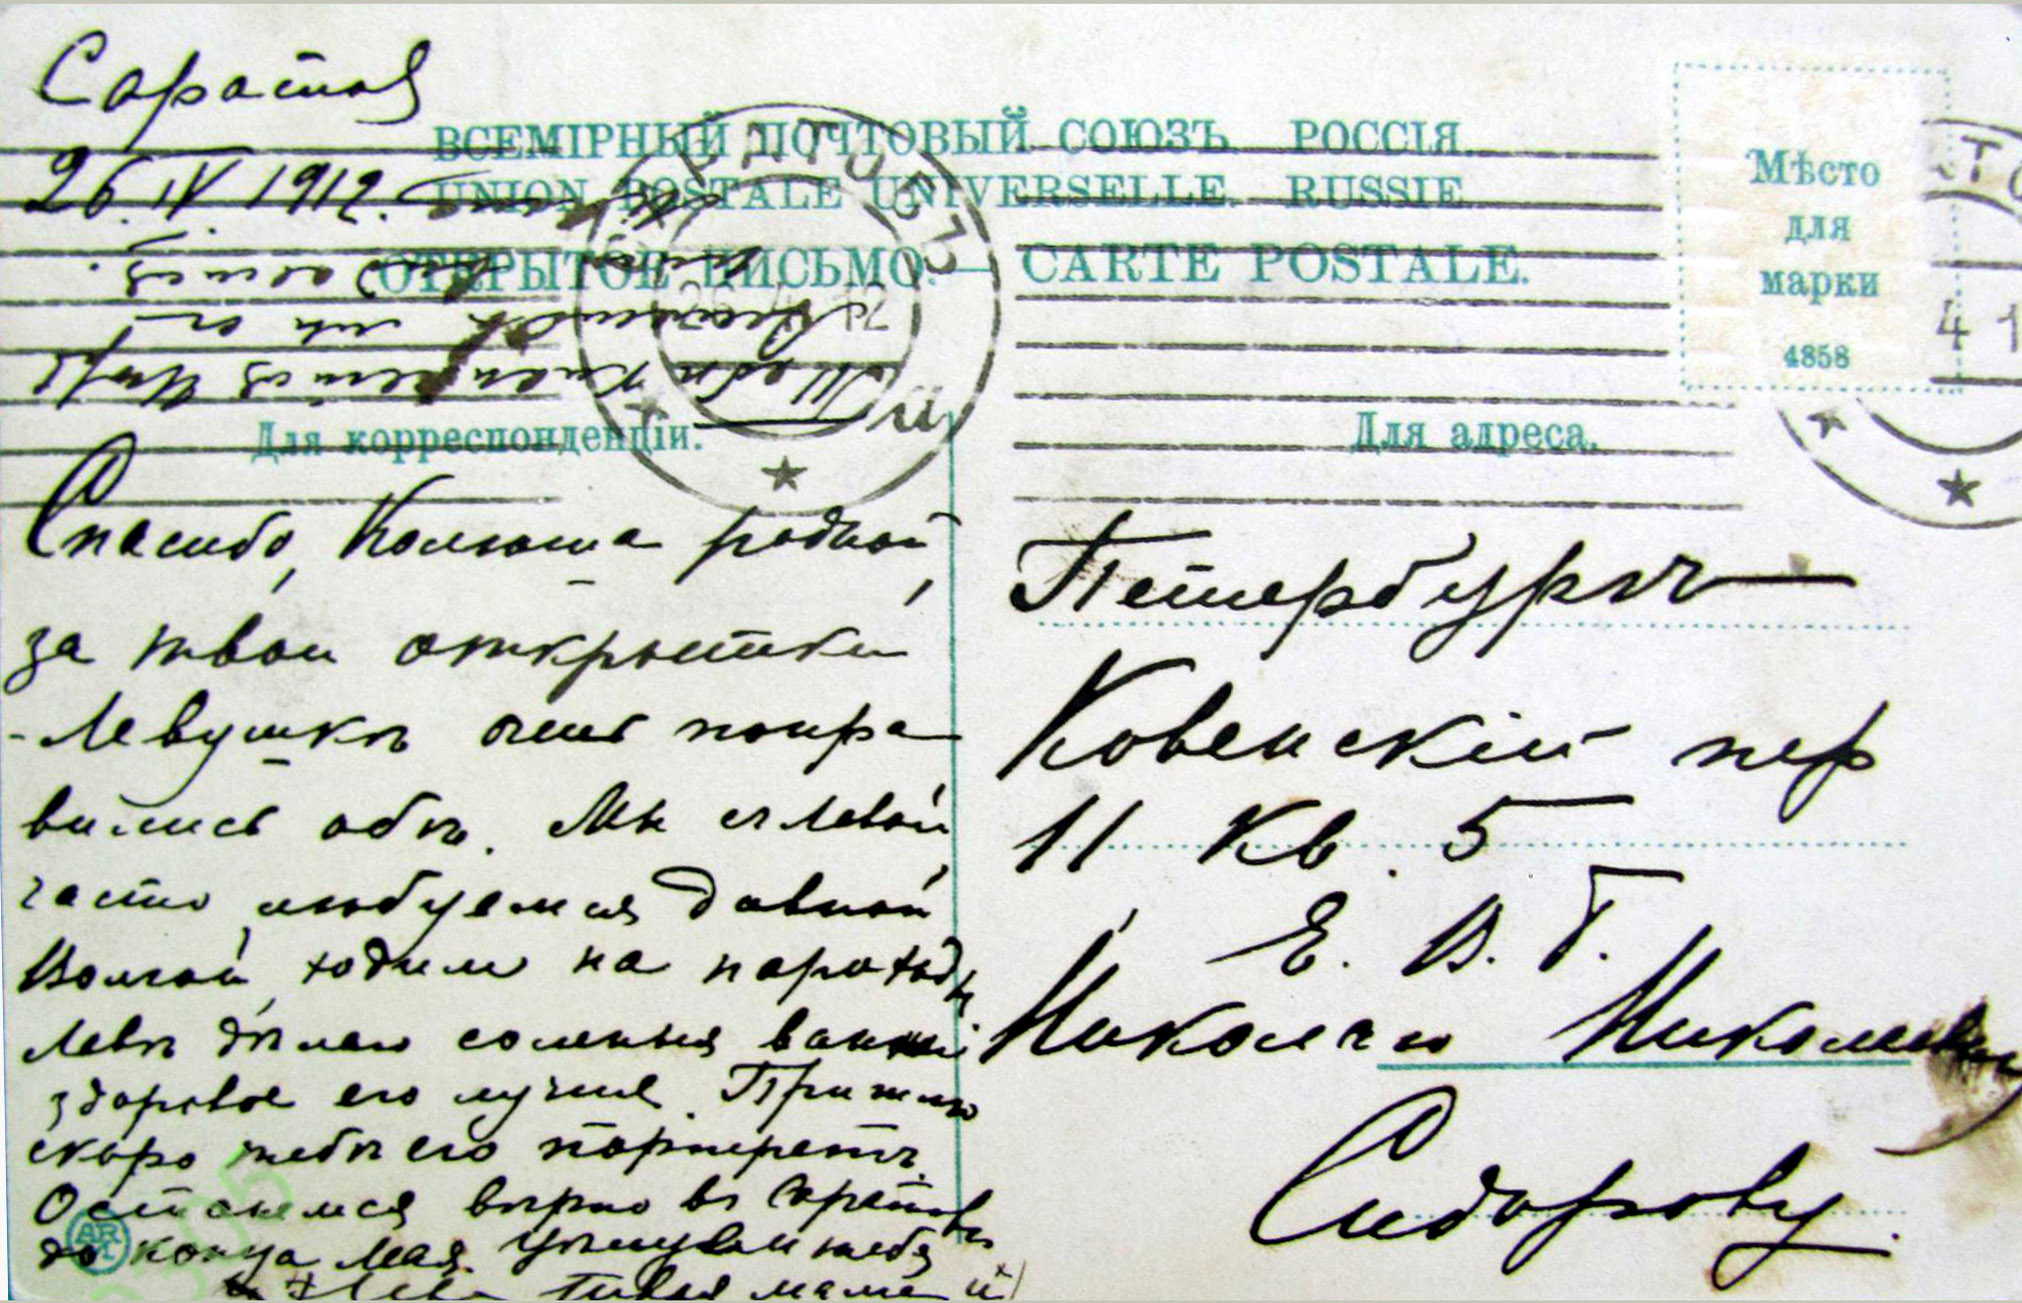 Саратов
26. IV 1912.
ВСЕМІРНЫЙ ПОЧТОВЫЙ СОЮЗЪ. РОССІЯ.
UNION POSTALE UNIVERSELLE. RUSSIE.
ОТКРЫТОЕ ПИСЬМО. — CARTE POSTALE.
Мѣсто
для
марки
4858
САРАТОВЪ
Для корреспонденціи.
Для адреса.
Спасибо, Колюша родной,
за твои открытки
Левушкѣ очень понра
вились обѣ. Мы съ Левой
часто любуемся давной
Волгой, ходим на пароходы
Лева дѣлаю соленыя ванны
здоровье его лучше. Пришлю
скоро тебѣ его портретъ.
Останемся вѣрно въ Саратовѣ
до конца мая. Цѣлуем тебя
Лева твоя мама
Петербургъ
Ковенскій пер
11 Кв. 5
Е. В. Г.
Николаю Николаевичу
Сидорову.